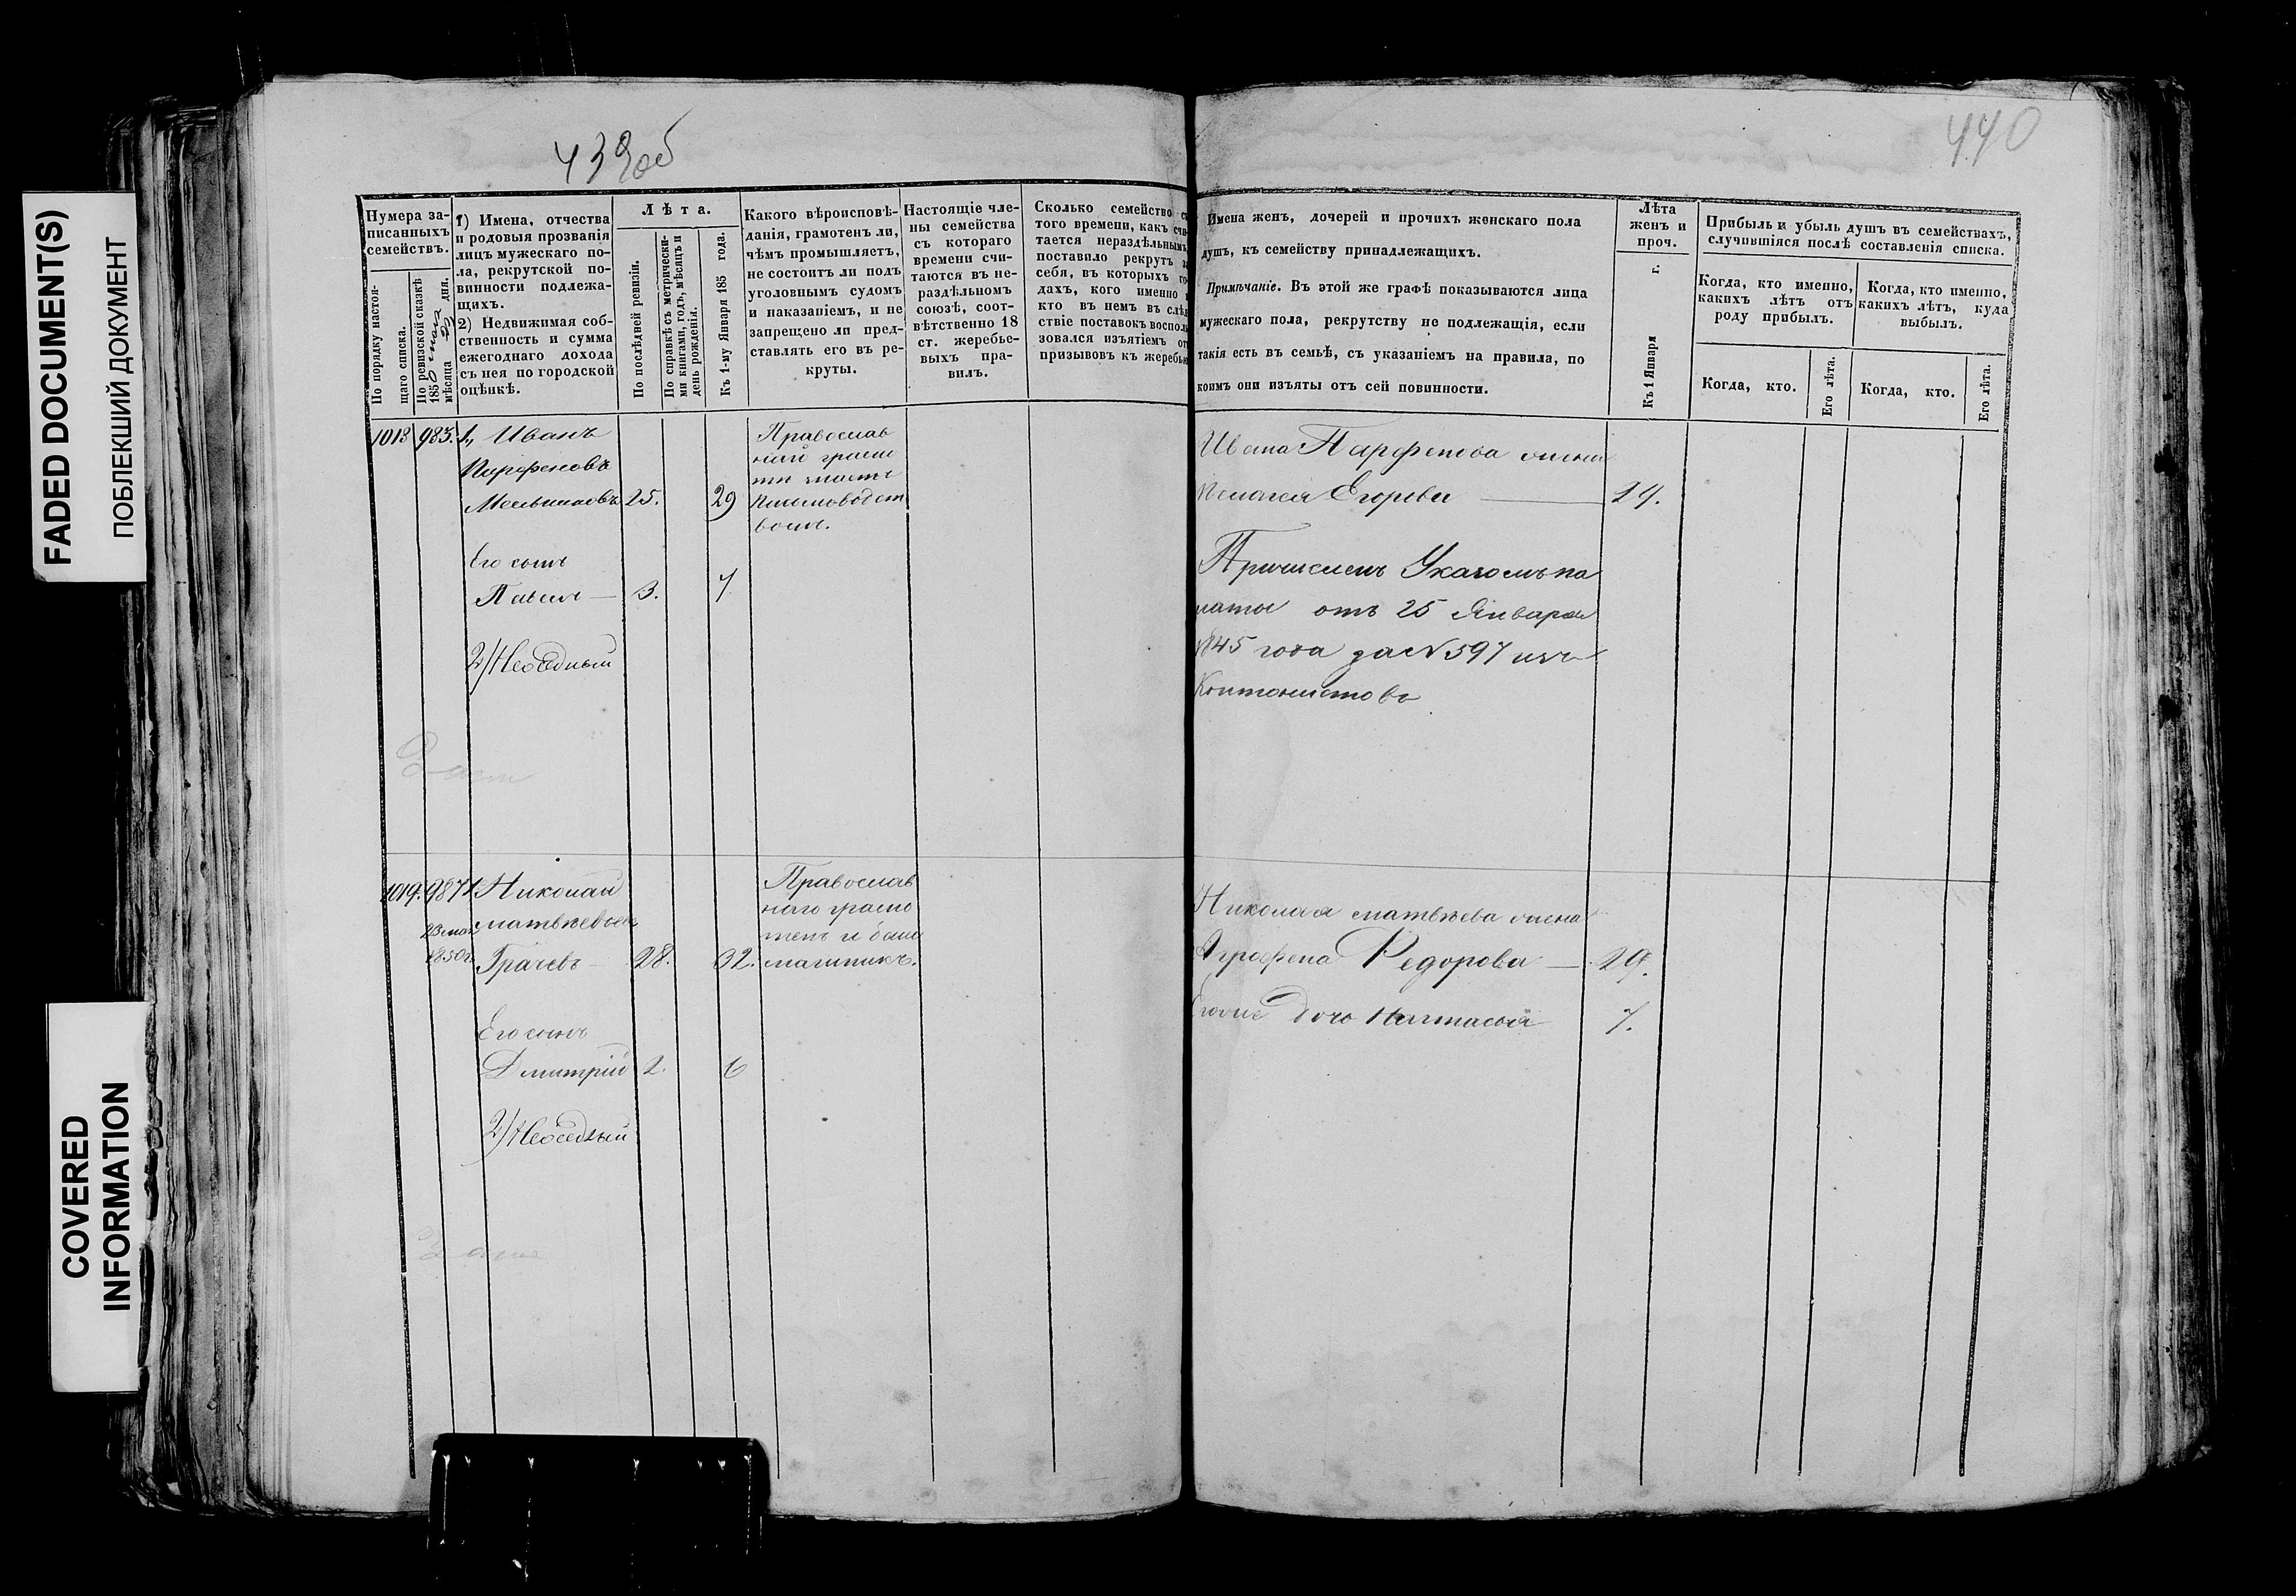 FADED DOCUMENT(S)
ПОБЛЕКШИЙ ДОКУМЕНТ
COVERED
INFORMATION
439об
440
Нумера за-
писанныхъ
семействъ.
По порядку настоя-
щаго списка.
По ревизской сказкѣ
1850 мая
мѣсяца дня.
1) Имена, отчества
и родовыя прозванія
лицъ мужескаго по-
ла, рекрутской по-
винности подлежа-
щихъ.
2) Недвижимая соб-
ственность и сумма
ежегоднаго дохода
съ нея по городской
оцѣнкѣ.
Лѣта.
По послѣдней ревизіи.
По справкѣ съ метрически-
ми книгами, годъ, мѣсяцъ и
день рожденія.
Къ 1-му Января 185 года.
Какого вѣроисповѣ-
данія, грамотенъ ли,
чѣмъ промышляетъ,
не состоитъ ли подъ
уголовнымъ судомъ
и наказаніемъ, и не
запрещено ли пред-
ставлять его въ ре-
круты.
Настоящіе чле-
ны семейства
съ котораго
времени счи-
таются въ не-
раздѣльномъ
союзѣ, соот-
вѣтственно 18
ст. жеребье-
выхъ пра-
вилъ.
Сколько семейство съ
того времени, какъ счи-
тается нераздѣльнымъ,
поставило рекрутъ за
себя, въ которыхъ го-
дахъ, кого именно и
кто въ немъ въ слѣд-
ствіе поставокъ восполь-
зовался изъятіемъ отъ
призывовъ къ жеребью
Имена женъ, дочерей и прочихъ женскаго пола
душъ, къ семейству принадлежащихъ.
Примѣчаніе. Въ этой же графѣ показываются лица
мужескаго пола, рекрутству не подлежащія, если
такія есть въ семьѣ, съ указаніемъ на правила, по
коимъ они изъяты отъ сей повинности.
Лѣта
женъ и
проч.
Къ 1 Января г.
Прибыль и убыль душъ въ семействахъ,
случившіяся послѣ составленія списка.
Когда, кто именно,
какихъ лѣтъ отъ
роду прибылъ.
Когда, кто именно,
какихъ лѣтъ, куда
выбылъ.
Когда, кто.
Его лѣта.
Когда, кто.
Его лѣта.
1018 983. 1, Иванъ
Парфеновъ
Мельниковъ 25. 29
Православ
ный грамо
ти
Письмоводст
вомъ.
Его сынъ
Павелъ — 3. 7
2/ Неоседлый
Ивана Парфенова жена
Пелагея Егорова — 24.
Причисленъ Указомъ па
латы отъ 25 Января
1845 года за № 597 изъ
Кантонистовъ
1019. 987 1 Николай
23 мая матвѣевъ
1850 г. Грачевъ — 28. 32.
Православ
наго грамо
тенъ и баш
машникъ.
Его сынъ
Дмитрій 2. 6
2/ Неоседлый
Николая матвѣева жена
Аграфена Федорова — 29.
Его дочь Настасья 7.